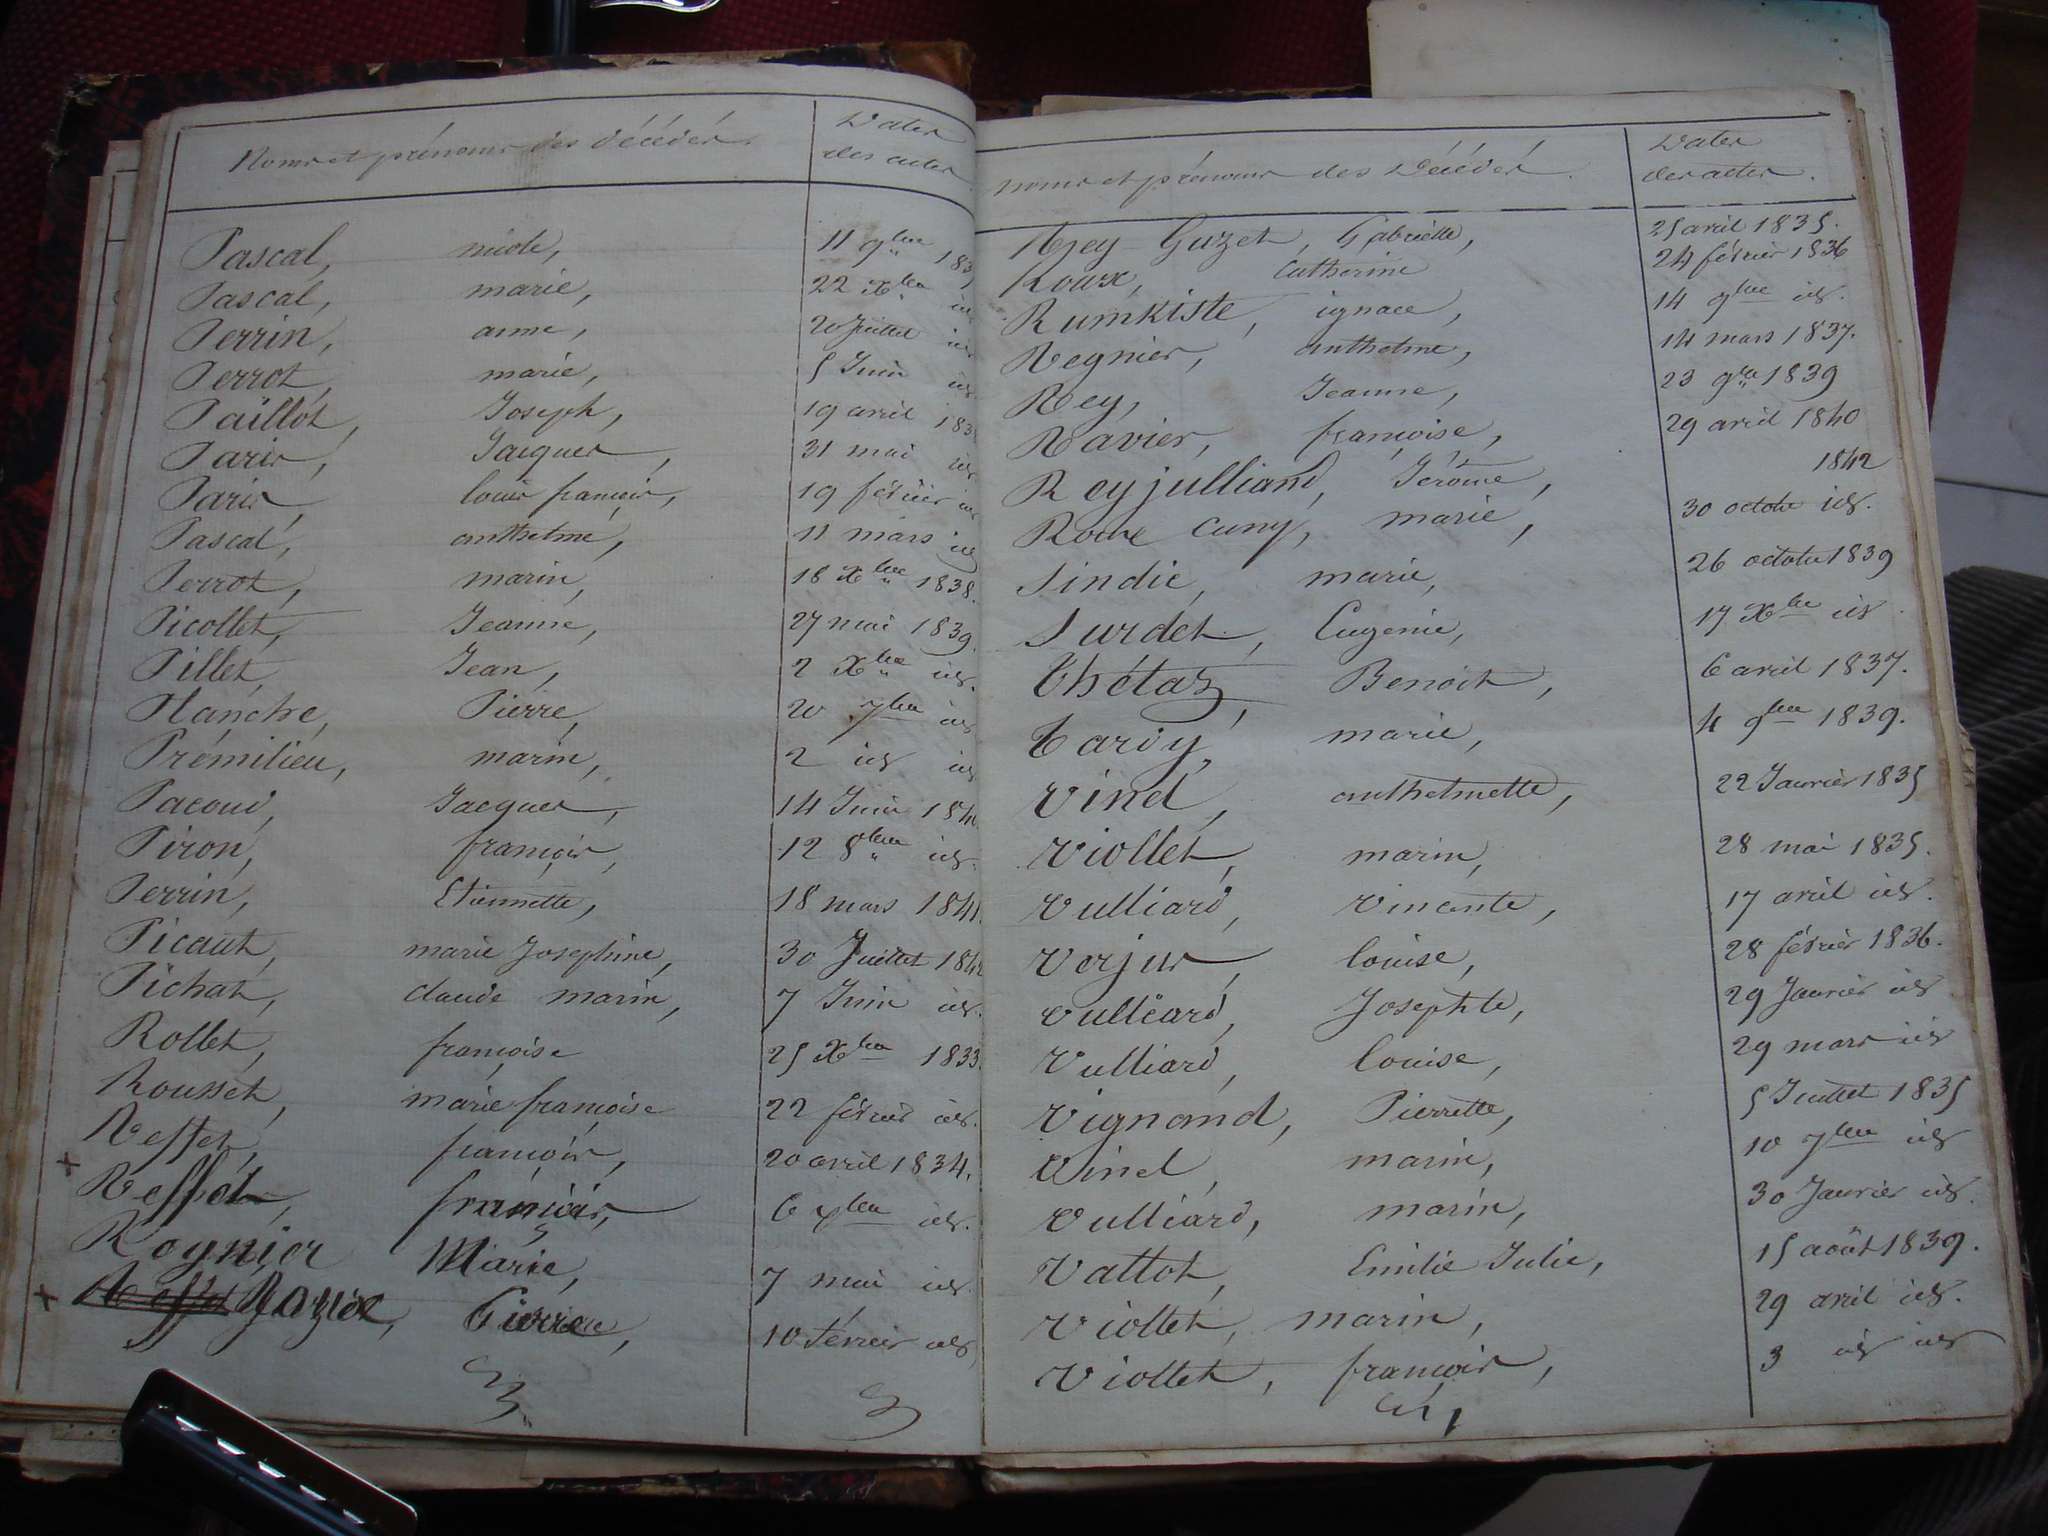 Noms et prénoms des Décédés. Dates des actes.
Pascal, 11 9bre 183
Pascal, marie, 22 Xbre
Perrin, anne, 20 Juillet id
Perrot, marie, 5 Juin id
Paillot, Joseph, 19 avril 183
Paris, Jacques, 31 mai id
Paris, louis françois, 19 février id
Pascal, anthelme, 11 mars id
Perrot, marin, 18 Xbre 1838.
Picollet, Jeanne, 27 mai 1839.
Pillet, Jean, 2 Xbre id.
Planche, Pierre, 20 7bre id
Prémilieu, marin, 2 id id
Pacoud, Jacques, 14 Juin 184
Piron, françois, 12 8bre id.
Perrin, Etiennette, 18 mars 1841.
Picaut, marie Josephine, 30 Juillet 184
Pichat, claude marin, 7 Juin id.
Rollet, françoise 25 Xbre 1833.
Rousset, marie françoise 22 février id.
Reffet, françois, 20 avril 1834.
x Reffet, françois, 6 id.
Rognier Marie, 7 mai id.
x Reffet Pierre, 10 février id
Noms et prénoms des Décédés. Dates des actes.
Rey-Guzet, Gabrielle, 25 avril 1835.
Roux, Catherine 24 février 1836
Rumkiste, ignace, 14 9bre id.
Regnier, anthelme, 14 mars 1837.
Rey, Jeanne, 23 9bre 1839
Ravier, françoise, 29 avril 1840
Reyjulliand, Jérôme, 1842
Roche Cuny, marie, 30 octobre id.
Sindic, marie, 26 octobre 1839
Surdet, Eugenie, 17 Xbre id
Thétaz, Benoit, 6 avril 1837.
Tardy, marie, 4 9bre 1839.
Vinel, anthelmette, 22 Janvier 1835
Viollet, marin, 28 mai 1835.
Vulliard, Vincente, 17 avril id.
Verjus, louise, 28 février 1836.
Vulliard, Josephte, 29 Janvier id
Vulliard, louise, 29 mars id
Vignand, Pierrette, 5 Juillet 1835
Vinel, marin, 10 7bre id
Vulliard, marin, 30 Janvier id.
Vattot, Emilie Julie, 15 août 1839.
Viollet, marin, 29 avril id.
Viollet, françois, 3 id id